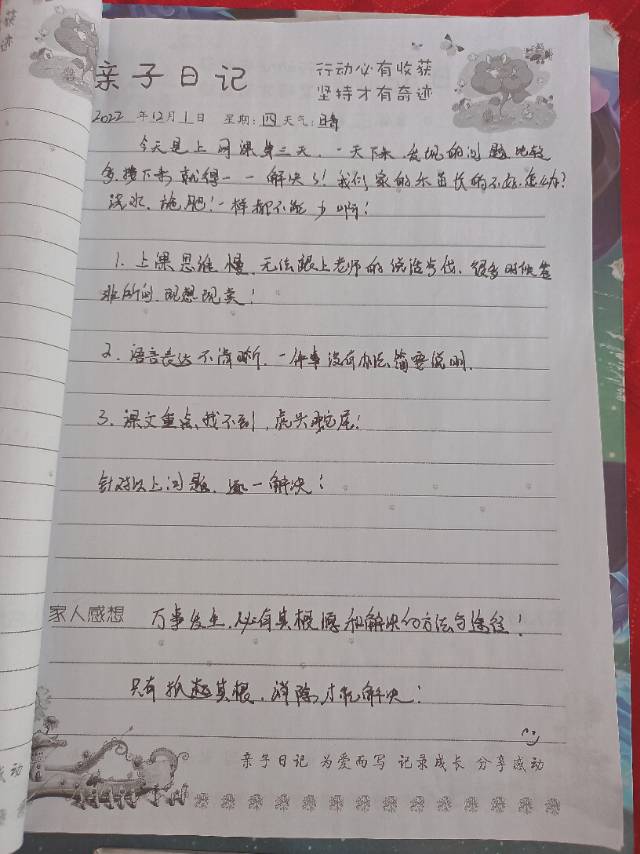 亲子日记
行动必有收获
坚持才有奇迹
2022年12月1日 星期:四 天气:晴
今天是上网课第三天,一天下来,发现的问题比较
多,接下来就得一一解决了!我们家的禾苗长的不好,怎么办?
浇水、施肥!一样都不能少啊!
1. 上课思维慢,无法跟上老师的 很多时候答
非所问,
2. 语言表达不清晰,一件事没有办法简要说明.
3. 课文重点找不到,虎头蛇尾!
针对以上问题,逐一解决!
家人感想 万事发生,必有其根源和解决的方法与途径!
只有抓起其根,消除,才能解决!
亲子日记 为爱而写 记录成长 分享感动
获
迹
感动